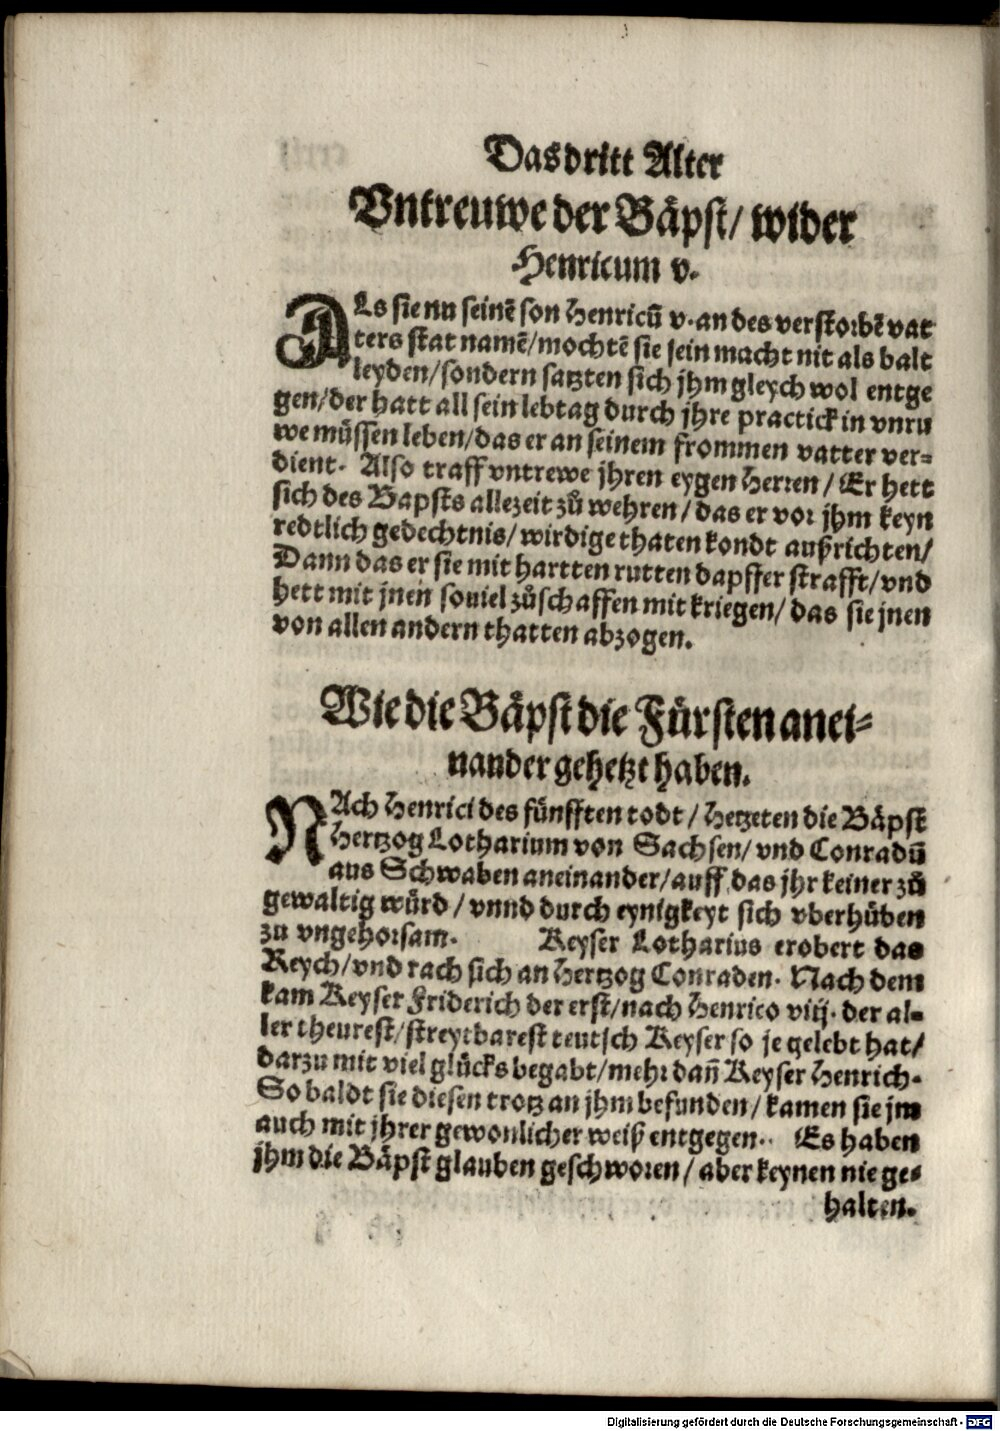 Das dritt Alter
Vntreuwe der Bäpst/ wider
Henricum v.
ALs sie nu seinē son Henricū v. an des verstorbē vat
ters stat namē/ mochtē sie sein macht nit als balt
leyden/ sondern satzten sich jhm gleych wol entge
gen/ der hatt all sein lebtag durch jhre practick in vnru
we müssen leben/ das er an seinem frommen vatter ver-
dient. Also traff vntrewe jhren eygen Herren/ Er hett
sich des Bapsts allezeit zů wehren/ das er vor jhm keyn
redtlich gedechtnis/ wirdige thaten kondt außrichten/
Dann das er sie mit hartten rutten dapffer strafft/ vnd
hett mit jnen souiel zůschaffen mit kriegen/ das sie jnen
von allen andern thatten abzogen.
Wie die Bäpst die Fürsten anei-
nander gehetzt haben.
NAch Henrici des fünfften todt/ Hetzeten die Bäpst
Hertzog Lotharium von Sachsen/ vnd Conradū
aus Schwaben aneinander/ auff das jhr keiner zů
gewaltig würd/ vnnd durch eynigkeyt sich vberhüben
zu vngehorsam. Keyser Lotharius erobert das
Reych/ vnd rach sich an Hertzog Conraden. Nach dem
kam Keyser Friderich der erst/ nach Henrico viij. der al-
ler theurest/ streytbarest teutsch Keyser so je gelebt hat/
darzu mit viel glücks begabt/ mehr dañ Keyser Henrich.
So baldt sie diesen trotz an jhm befunden/ kamen sie jm
auch mit jhrer gewonlicher weiß entgegen. Es haben
jhm die Bäpst glauben geschworen/ aber keynen nie ge-
halten.
Digitalisierung gefördert durch die Deutsche Forschungsgemeinschaft - DFG